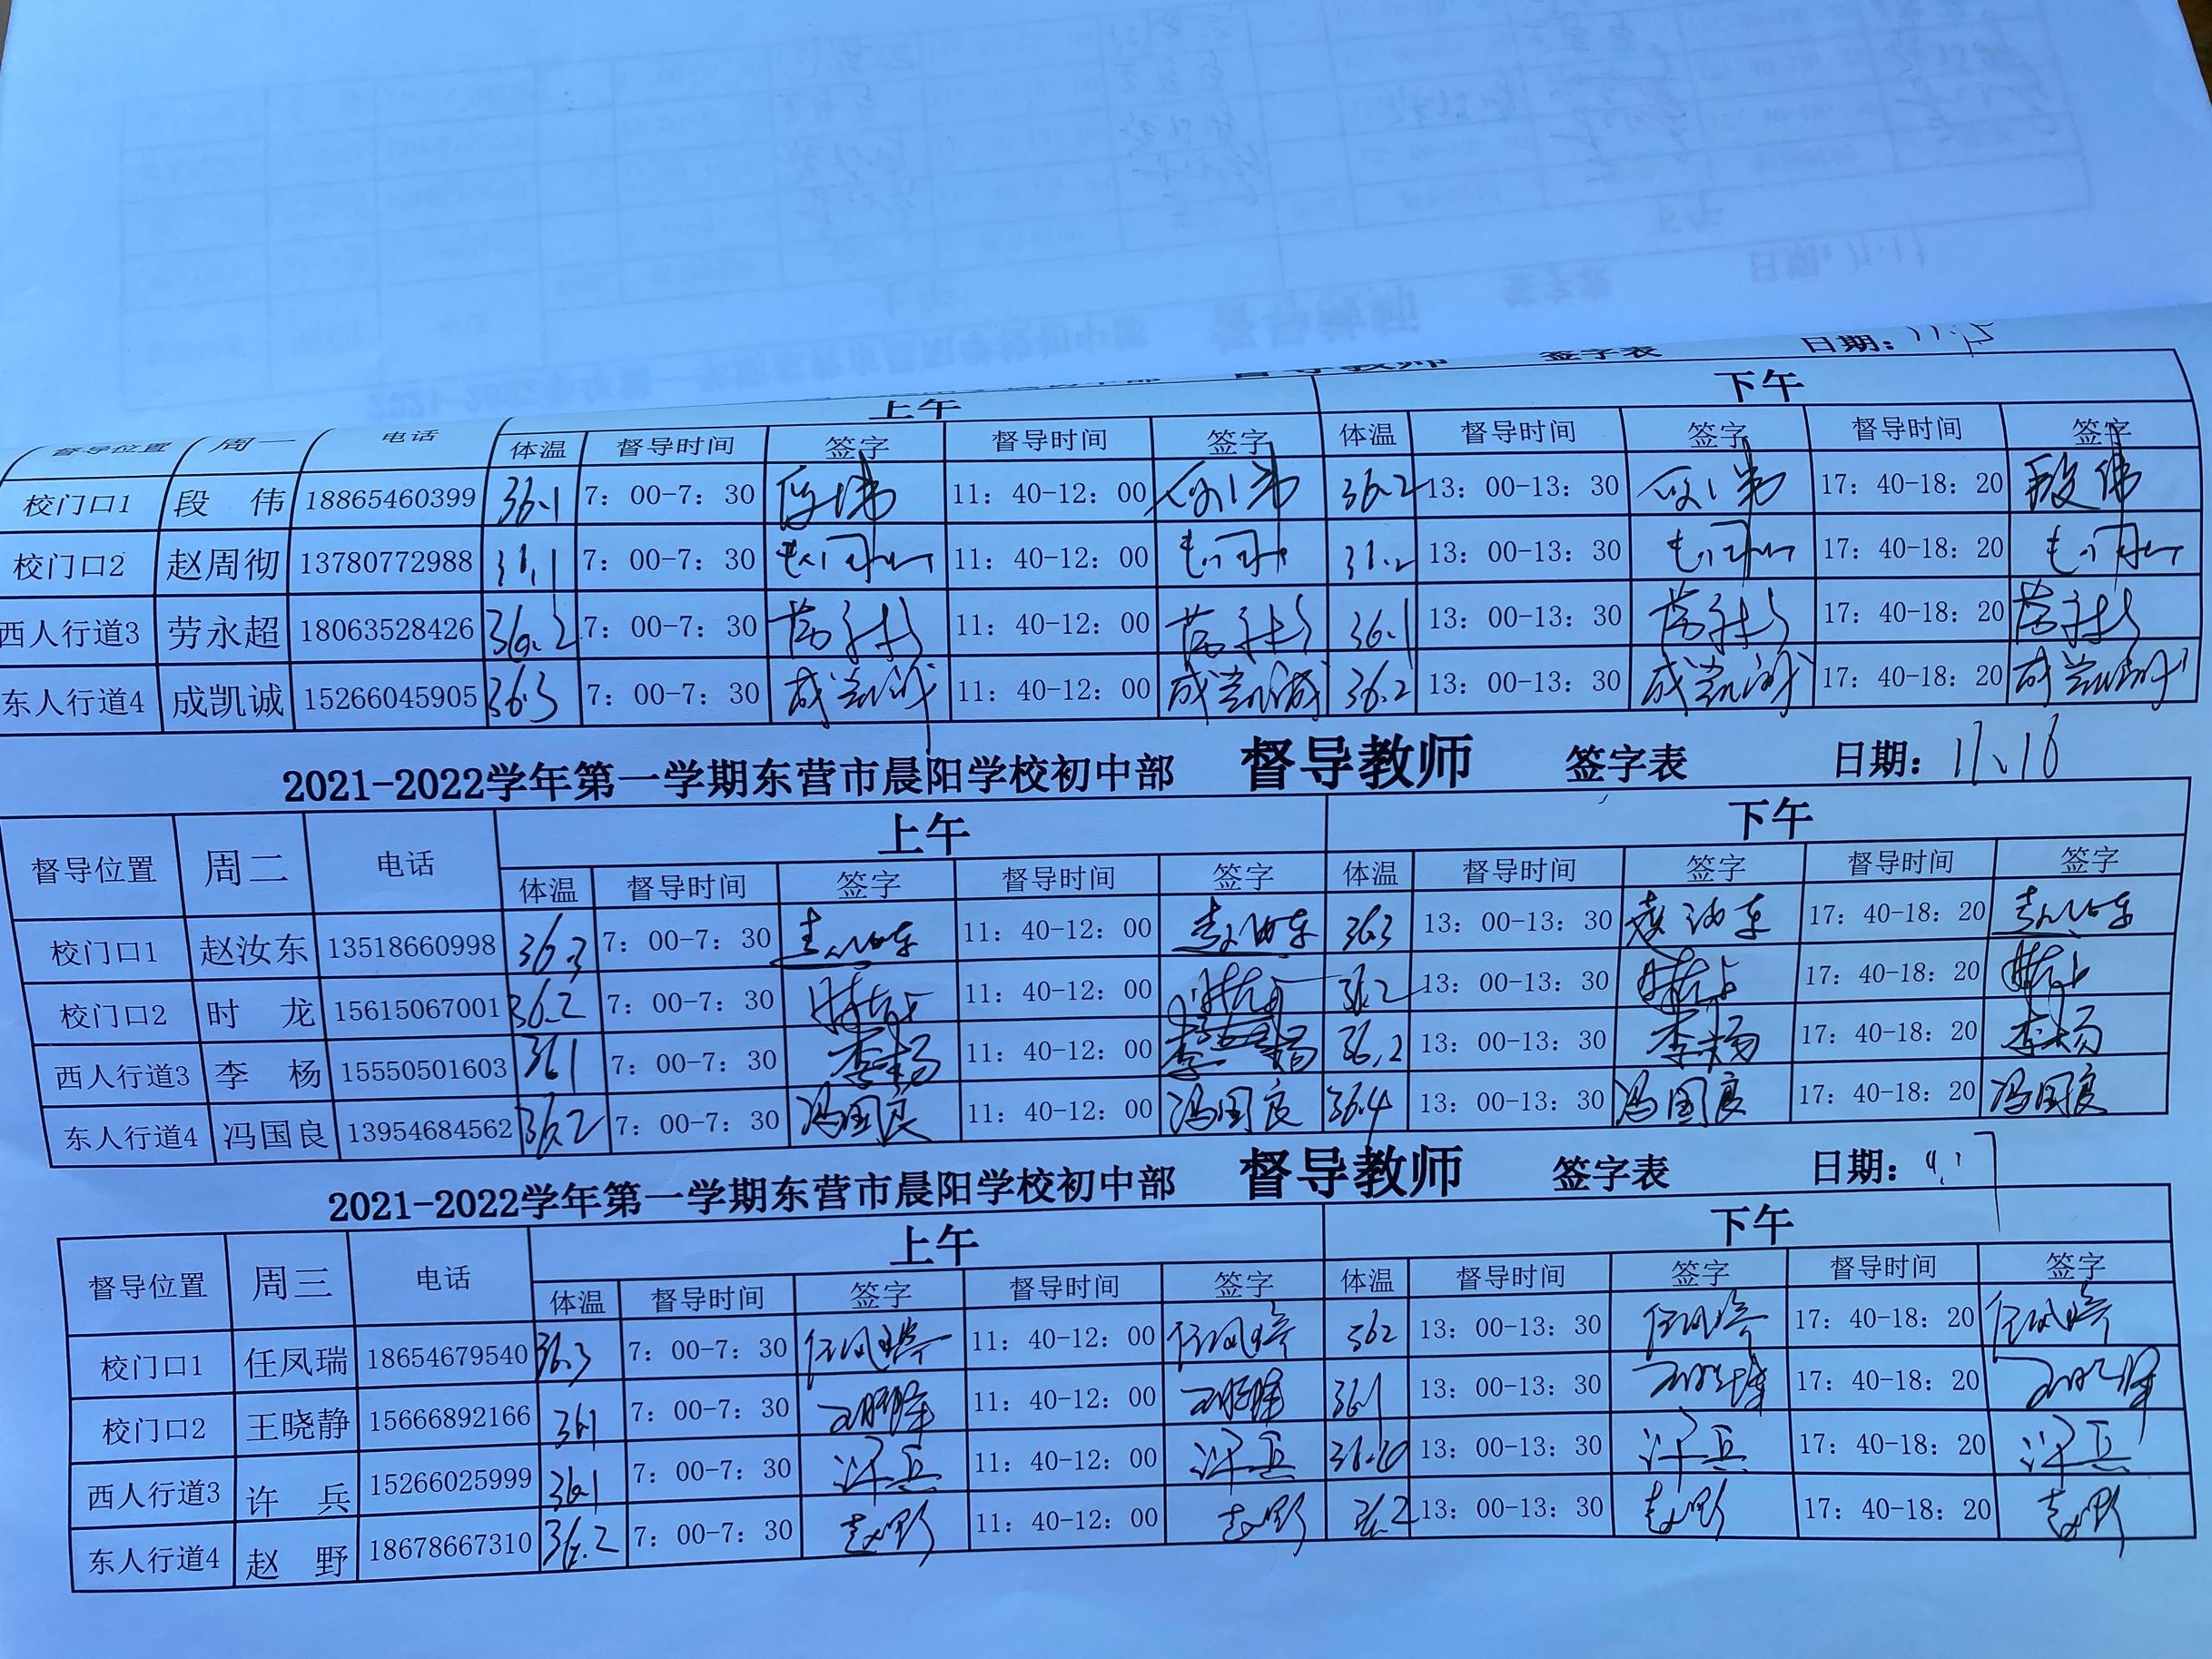 督导教师 签字表 日期：11.15
上午 下午
督导位置 周一 电话 体温 督导时间 签字 督导时间 签字 体温 督导时间 签字 督导时间 签字
校门口1 段 伟 18865460399 36.1 7：00-7：30 段伟 11：40-12：00 段伟 36.2 13：00-13：30 段伟 17：40-18：20 段伟
校门口2 赵周彻 13780772988 7：00-7：30 11：40-12：00 13：00-13：30 17：40-18：20
西人行道3 劳永超 18063528426 36.2 7：00-7：30 劳永超 11：40-12：00 劳永超 36.1 13：00-13：30 劳永超 17：40-18：20 劳永超
东人行道4 成凯诚 15266045905 36.3 7：00-7：30 成凯诚 11：40-12：00 成凯诚 36.2 13：00-13：30 成凯诚 17：40-18：20 成凯诚
2021-2022学年第一学期东营市晨阳学校初中部 督导教师 签字表 日期：11、16
上午 下午
督导位置 周二 电话 体温 督导时间 签字 督导时间 签字 体温 督导时间 签字 督导时间 签字
校门口1 赵汝东 13518660998 36.3 7：00-7：30 赵汝东 11：40-12：00 赵汝东 36.3 13：00-13：30 赵汝东 17：40-18：20 赵汝东
校门口2 时 龙 15615067001 36.2 7：00-7：30 时龙 11：40-12：00 时龙 36.2 13：00-13：30 时龙 17：40-18：20 时龙
西人行道3 李 杨 15550501603 361 7：00-7：30 李杨 11：40-12：00 李杨 36.2 13：00-13：30 李杨 17：40-18：20 李杨
东人行道4 冯国良 13954684562 36.2 7：00-7：30 冯国良 11：40-12：00 冯国良 36.4 13：00-13：30 冯国良 17：40-18：20 冯国良
2021-2022学年第一学期东营市晨阳学校初中部 督导教师 签字表 日期：
上午 下午
督导位置 周三 电话 体温 督导时间 签字 督导时间 签字 体温 督导时间 签字 督导时间 签字
校门口1 任凤瑞 18654679540 36.3 7：00-7：30 任凤瑞 11：40-12：00 任凤瑞 362 13：00-13：30 任凤瑞 17：40-18：20 任凤瑞
校门口2 王晓静 15666892166 36.1 7：00-7：30 王晓静 11：40-12：00 王晓静 36.1 13：00-13：30 王晓静 17：40-18：20 王晓静
西人行道3 许 兵 15266025999 36.1 7：00-7：30 许兵 11：40-12：00 许兵 13：00-13：30 许兵 17：40-18：20 许兵
东人行道4 赵 野 18678667310 36.2 7：00-7：30 赵野 11：40-12：00 赵野 36.2 13：00-13：30 赵野 17：40-18：20 赵野